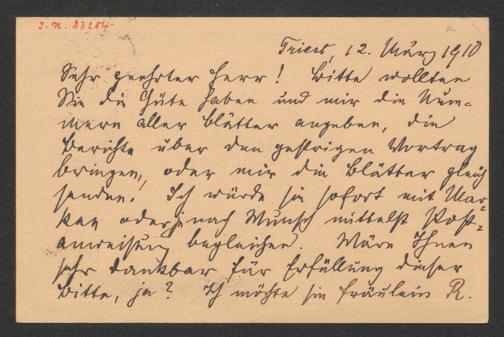 J. N. 83204
Triest, 12. März 1910
Sehr geehrter Herr! Bitte wollten
Sie die Güte haben und mir die Num-
mern aller Blätter angeben, die
Berichte über den gestrigen Vortrag
bringen, oder mir die Blätter gleich
senden. Ich würde sie sofort mit Mar-
ken oder je nach Wunsch mittelst Post-
anweisung begleichen. Wäre Ihnen
sehr dankbar für Erfüllung dieser
Bitte, ja? Ich möchte sie Fräulein R.